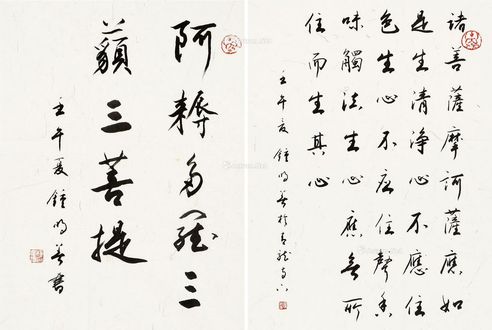 阿耨多羅三
藐三菩提
壬午夏鍾明善書
諸菩薩摩訶薩應如
是生清淨心不應住
色生心不应住聲香
味觸法生心應無所
住而生其心
壬午夏鍾明善於